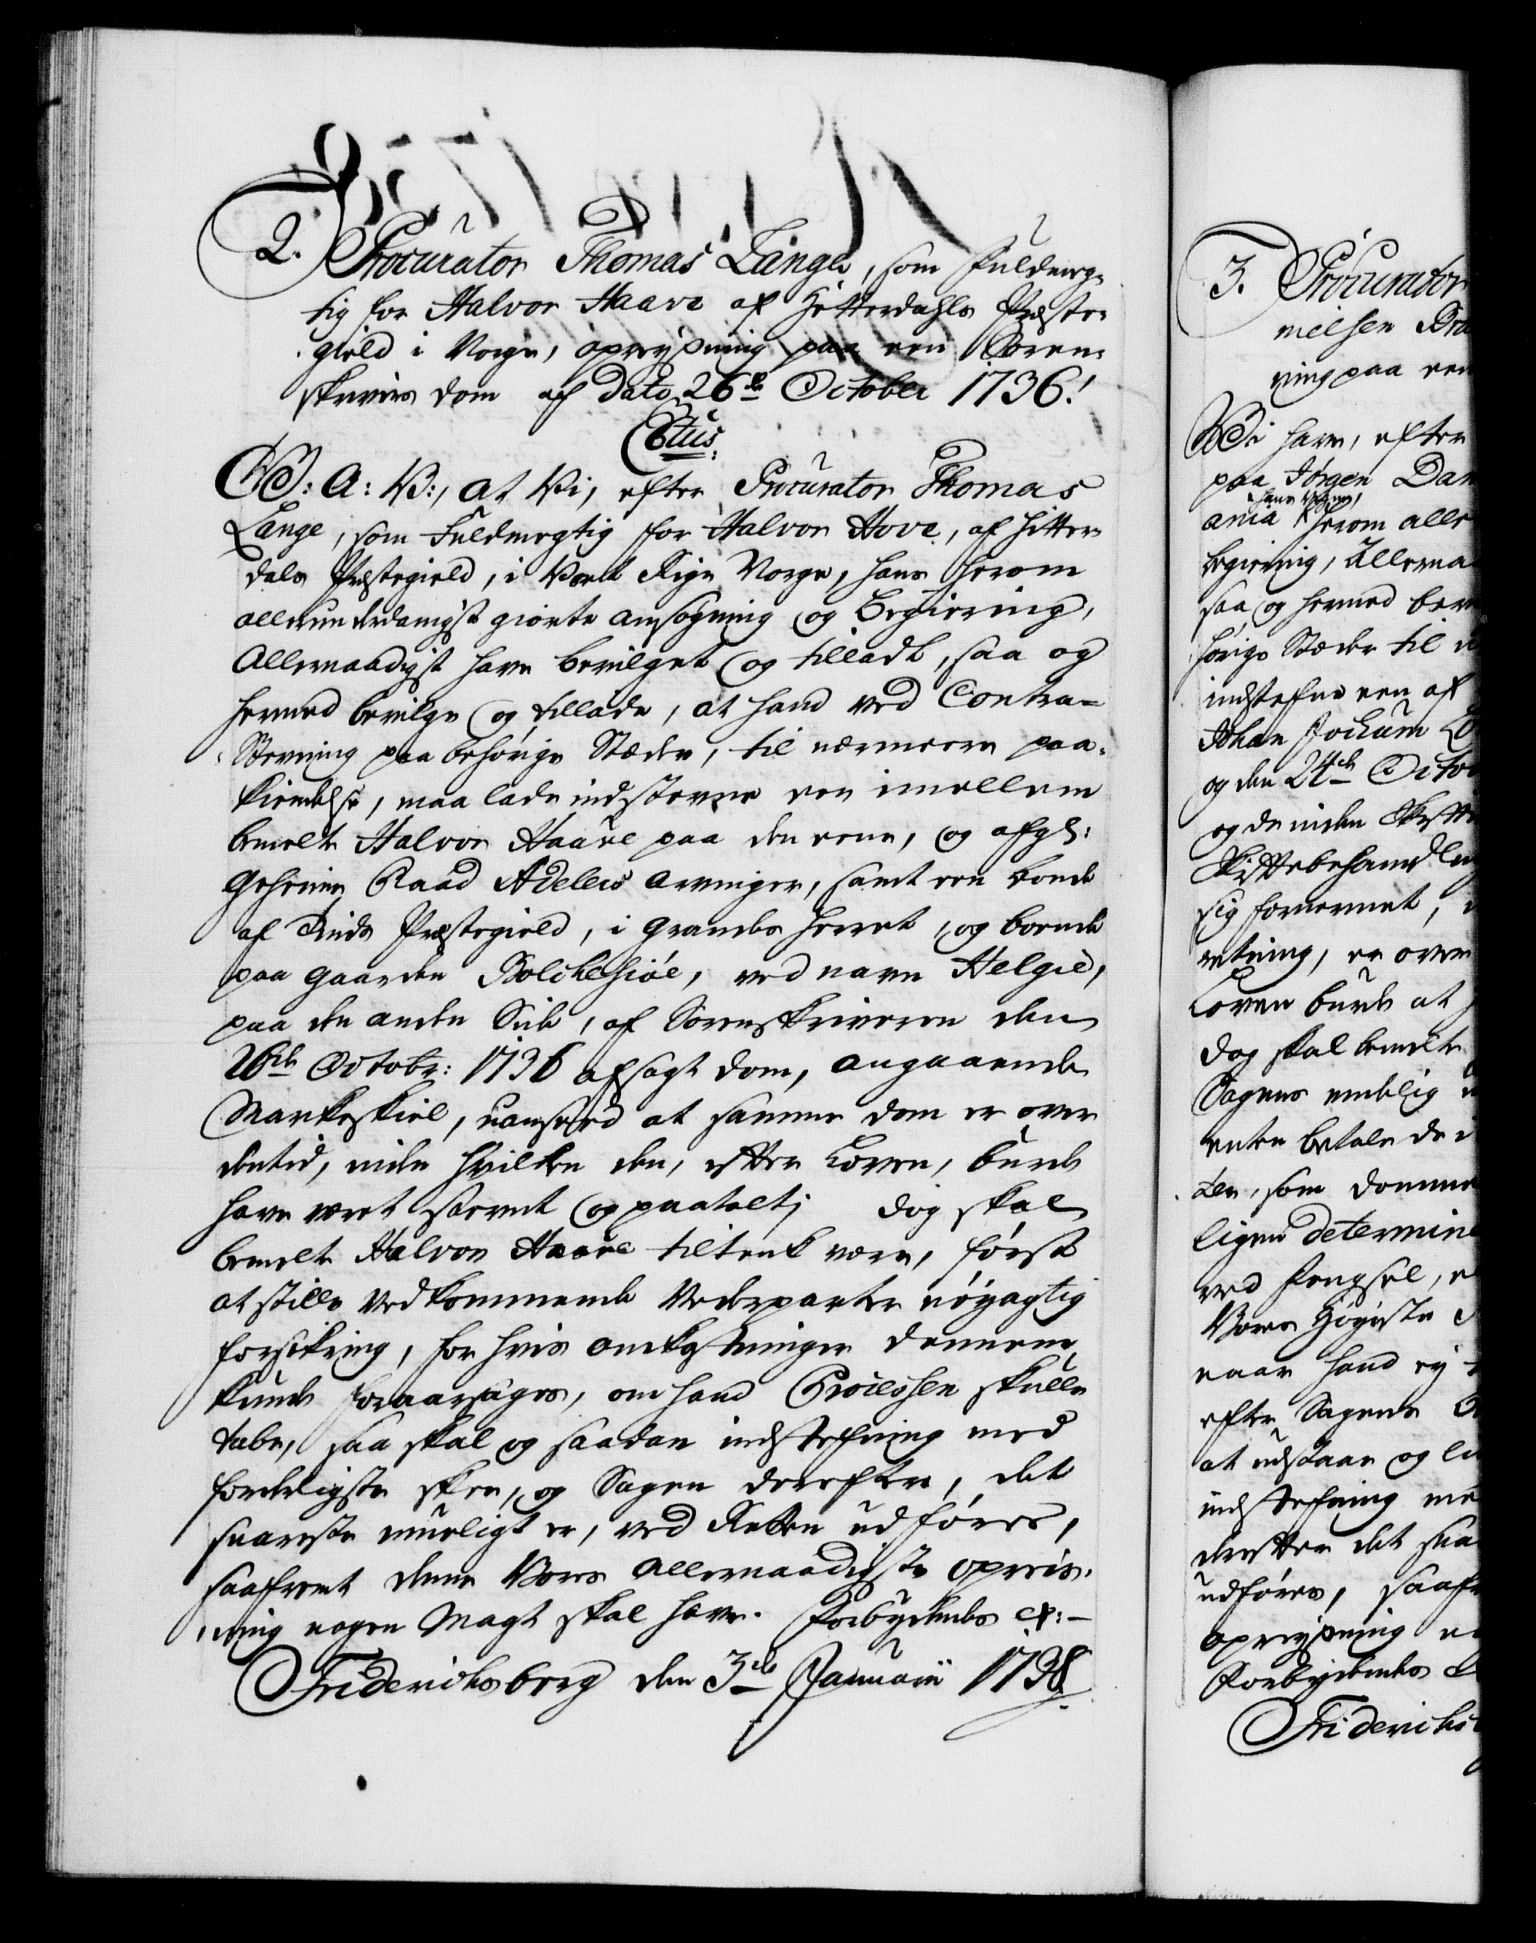 2. Procurator Thomas Lange, som Fuldmæg-
tig for Halvor Haave af Hitterdahls Præste-
gield i Norge, opreysning paa een Soren-
skrivers dom af Dato 26de October 1736!
C6tus.
G: A: V:, at Vi, efter Procurator Thomas
Lange, som Fuldmegtig for Halvor Hove, af Hitter-
dals Præstegield, i Vort Rige Norge, hans herom
allerunderdanigst giorte ansøgning og Begiering,
Allernaadigst have bevilget og tilladt, saa og
hermed bevilge og tillade, at hand ved Contra-
Stevning paa behørige Stæder, til nærmeere paa-
kiendelse, maa lade indstevne een imellem
bemelte Halvor Haave paa den eene, og afgl:
Geheime Raad Adelers Arvinger, samt een bonde
af Tinds Præstegield, i Grandsherret, og boende
paa gaarden Bolchesiøe, ved navn Helgie,
paa den anden Side, af Sorenskriveren den
26de Octobr: 1736 afsagt dom, angaaende
Markeskiel, uanseed at samme dom er over
den tid, inden hvilken den, efter Loven, burde
have været stevnt og paatalt; dog skal
bemelte Halvor Haave tiltænkt være, først
at stille Vedkommende Vederparter nøyagtig
forsikring, for hvis omkostninger dennem
kunde foraarsages, om hand Processen skulle
tabe, saa skal og saadan indstefning med
forderligste skee, og Sagen derefter, det
snareste mueligt er, ved Retten udføres,
saafremt denne Vores allernaadigste opreis-
ning nogen Magt skal have. Forbydendes &:-
Friderichsberg den 3de Januarii 1738.
3. Procurator
nielsen Bra
ning paa een
Vi have, efter
paa Jørgen Dan
hans Vegne,
ania herom aller
begiering, Allerna
saa og hermed bev
hørige Stæder til
indstefne een af
Johan Jochum
og den 24de Octo
og de inden Skifte
Skiftebehandling
sig fornermet,
retning, er over
Loven burde at
dog skal bemelte
Sagens endelig
enten betale de i
der, som domme
ligen determine
ved Fengsel,
Vores Høyeste
naar hand ey
efter Sagens
at udstaae og
indstefning me
derefter det sna
udføres, saafr
opreysning
Forbydendes
Friderichs